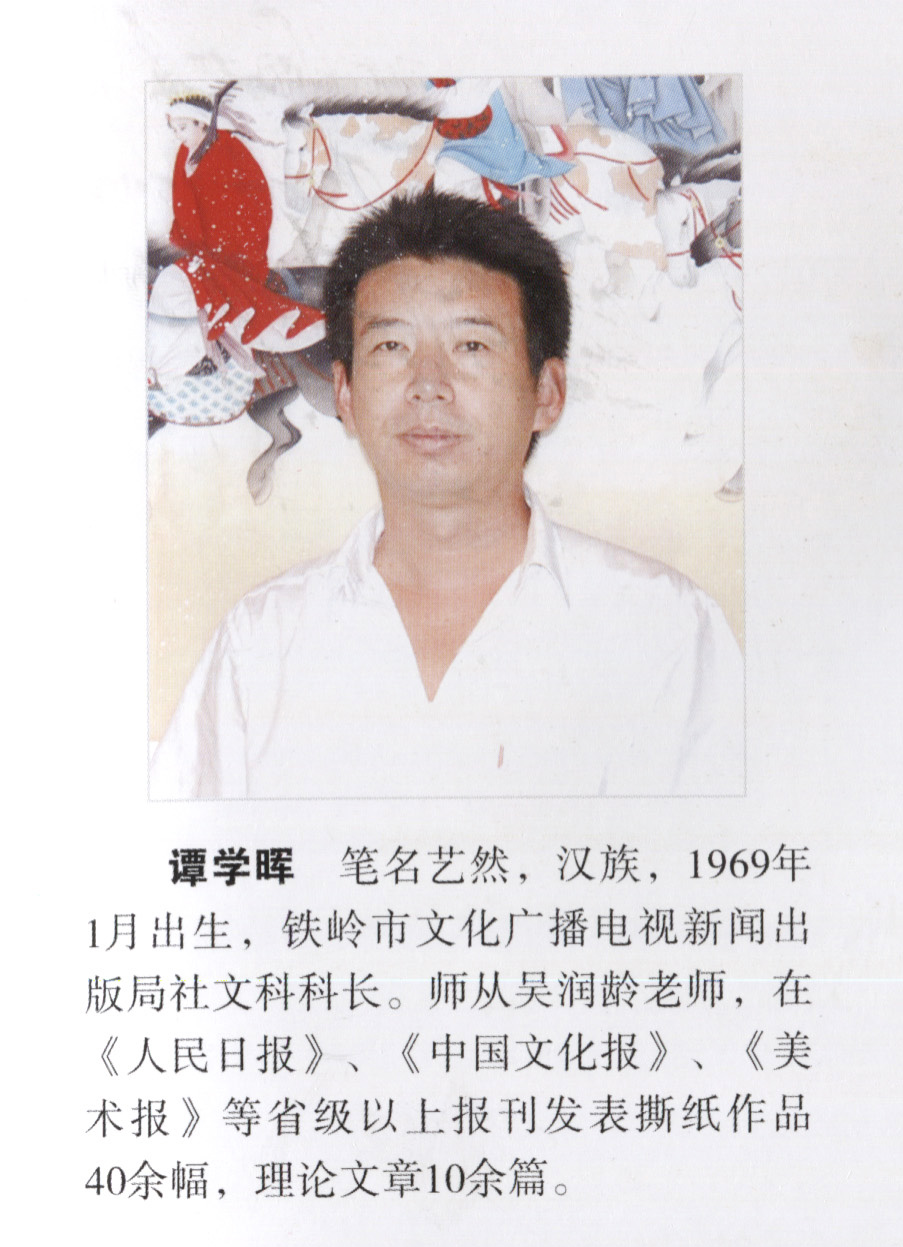 谭学晖 笔名艺然，汉族，1969年
1月出生，铁岭市文化广播电视新闻出
版局社文科科长。师从吴润龄老师，在
《人民日报》、《中国文化报》、《美
术报》等省级以上报刊发表撕纸作品
40余幅，理论文章10余篇。